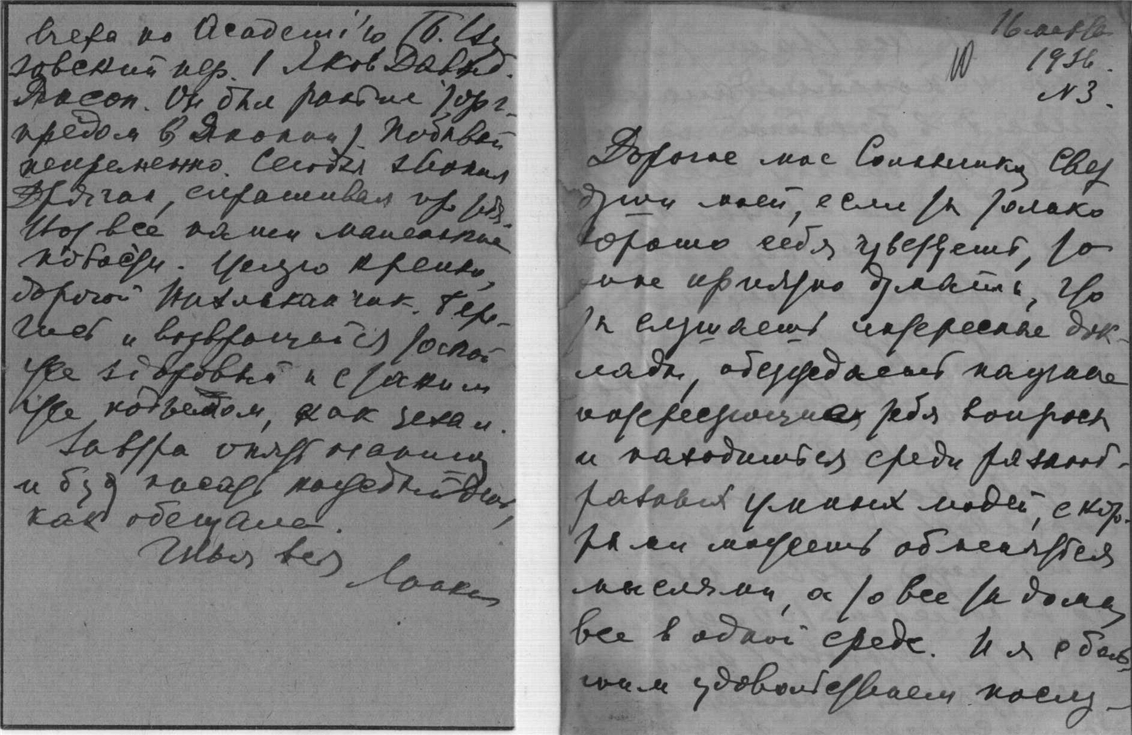 вчера по Академию (Б. Из
говский пер. 1 Яков Давыд.
Янсон. Он был раньше торг-
предом в Японии). Побывай
непременно. Сегодня звонил
спрашивал про тебя
Шлю все наши маленькие
новости. Целую крепко,
дорогой Бере-
гись и возвращайся такой
же здоровый и с таким
же подъемом, как уехал.
Завтра опять напишу
и буду писать каждый день,
как обещала.
Твоя вся
16 марта
1936.
N3.
Дорогое мое Солнышко, Свет
души моей, если ты только
хорошо себя чувствуешь, то
мне приятно думать, что
ты слушаешь интересные док-
лады, обсуждаешь научные
интересующие тебя вопросы
и находишься среди разнооб-
разных умных людей, с кото-
рыми можешь обменяться
мыслями, а то все ты дома,
все в одной среде. И я с боль-
шим удовольствием послу-